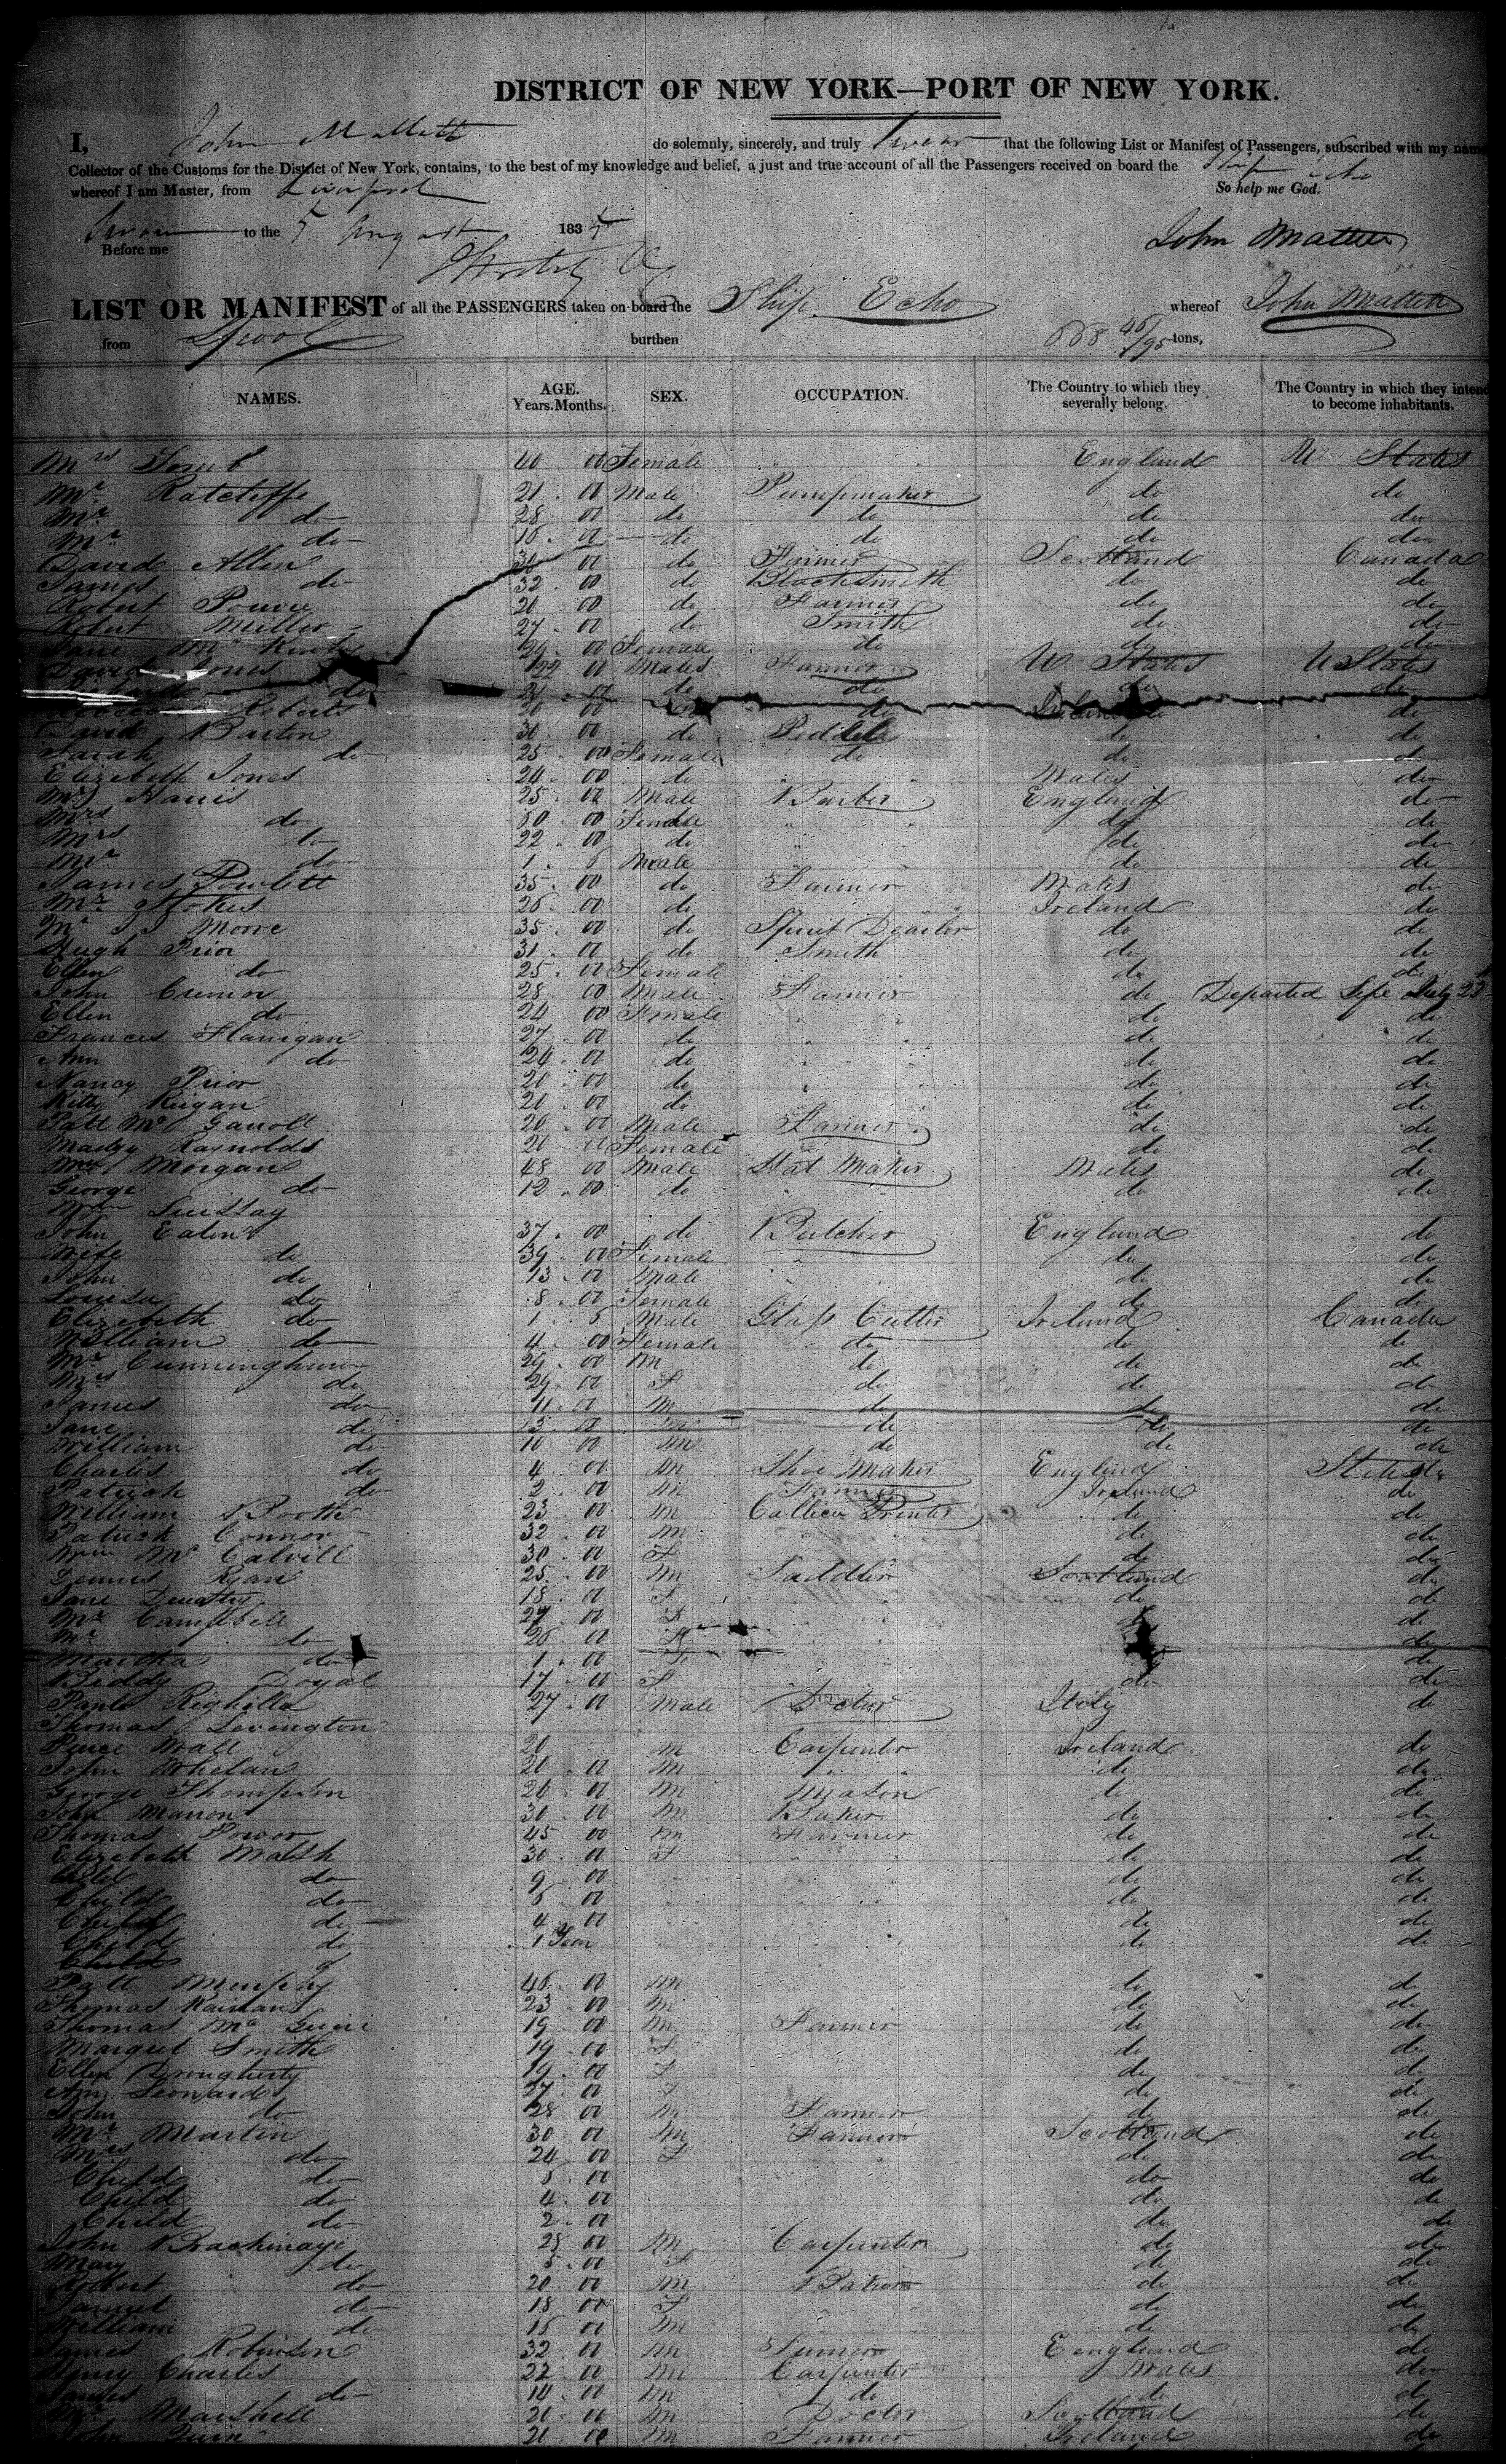 DISTRICT OF NEW YORK—PORT OF NEW YORK.
I, John Mallett do solemnly, sincerely, and truly swear that the following List or Manifest of Passengers, subscribed with my name
Collector of the Customs for the District of New York, contains, to the best of my knowledge and belief, a just and true account of all the Passengers received on board the Ship Echo
whereof I am Master, from Liverpool So help me God.
Sworn to the 5 August 183
Before me
John Mallett
LIST OR MANIFEST of all the PASSENGERS taken on board the Ship Echo whereof John Mallett
from L'pool burthen 668 46/95 tons,
NAMES. AGE. Years. Months. SEX. OCCUPATION. The Country to which they severally belong. The Country in which they intend to become inhabitants.
Mrs 40 00 Female England U States
Mr Ratcliffe 21 00 Male Pumpmaker do do
Mr do 28 00 do do do do
Mr do 16 00 do do do do
David Allen 00 do Farmer Scotland Canada
James do 32 00 do Blacksmith do do
Robert 20 00 do Farmer do do
Robert Miller 27 00 do Smith do do
Jane Mc 00 Female do do do
David Jones 22 00 Males Farmer U States U States
do 00 do do do
Roberts 00 do Ireland do
David Barton 30 00 do Pedler do do
Sarah do 25 00 Female do do do
Elizabeth Jones 24 00 do Wales do
Mr Harris 25 00 Male Barber England do
Mrs do 50 00 Female do do
Mrs do 22 00 do do do
Mr do 1 5 Male do do
James Powlett 35 00 do Farmer Wales do
Mr Stokes 26 00 do Ireland do
Mr Moore 35 00 do Spirit Dealer do do
Hugh Prior 31 00 do Smith do do
Ellen do 25 00 Female do do
John 28 00 Male Farmer do Departed Life July 23
Ellen do 24 00 Female do do
Frances Flanigan 27 00 do do do
Ann do 24 00 do do do
Nancy Prior 20 00 do do do
Kitty Keigan 20 00 do do do
Patt Mc Garroll 20 00 Male Farmer do do
Madge Raynolds 20 00 Female do do
Morgan 48 00 Male Hat Maker Wales do
George do 12 00 do do do
Wm
John Eaton 37 00 do Butcher England do
Wife do 39 00 Female do do
John do 13 00 Male do do
Louisa do 8 00 Female do do
Elizabeth do 1 5 Male Glass Cutter Ireland Canada
William do 4 00 Female do do do
Mr Cunningham 29 00 M do do do
Mrs do 29 00 F do do do
James do 11 00 M do do do
Jane do 13 00 M do do do
William do 10 00 M do do do
Charles do 4 00 M Shoe Maker England States
Patrick do 2 00 M Farmer Ireland do
William Booth 23 00 M Callico Printer do do
Patrick Connor 32 00 M do do
Wm Mc Calvill 30 00 F do do
Dennis Ryan 25 00 M Saddler Scotland do
Jane 18 00 F do do
Mr Campbell 27 00 F do
Mr do 26 00 do
Martha do 1 00 F do
Biddy Doyal 17 00 F do do
Paulo Righilla 27 00 Male Doctor Italy do
Thomas Levington
Peirce Wall 20 M Carpenter Ireland do
John Whelan 20 00 M do do
George Thompson 26 00 M Mason do do
John Manon 30 00 M Baker do do
Thomas Power 45 00 M Farmer do do
Elizabeth Walsh 30 00 F do do
Child do 9 00 do do
Child do 6 00 do do
Child do 4 00 do do
Child do 1 Year do do
Child
Patt Murphy 46 00 M do do
Thomas 23 00 M do do
Thomas Mc 19 00 M Farmer do do
Margret Smith 19 00 F do do
Ellen Drougherty 19 00 F do do
Ann Leonard 27 00 F do do
John do 28 00 M Farmer do do
Mr Martin 30 00 M Farmer Scotland do
Mrs do 24 00 F do do
Child do 5 00 do do
Child do 4 00 do do
Child do 2 00 do do
John 28 00 M Carpenter do do
Mary do 5 00 F do do
Robert do 20 00 M do do
Samuel do 18 00 F do do
William do 15 00 M do do
James Robinson 32 00 M England do
Henry Charles 22 00 M Carpenter Wales do
James do 14 00 M do do do
Mr Marshall 20 00 M Doctor Scotland do
John Quin 21 00 M Farmer Ireland do